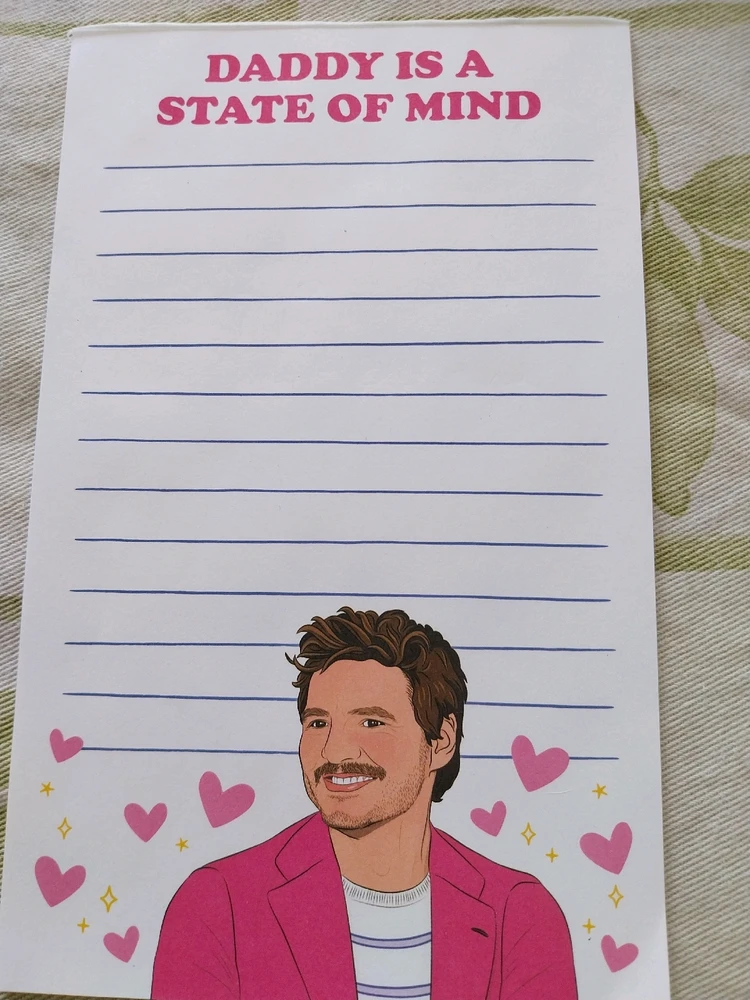 DADDY IS A
STATE OF MIND